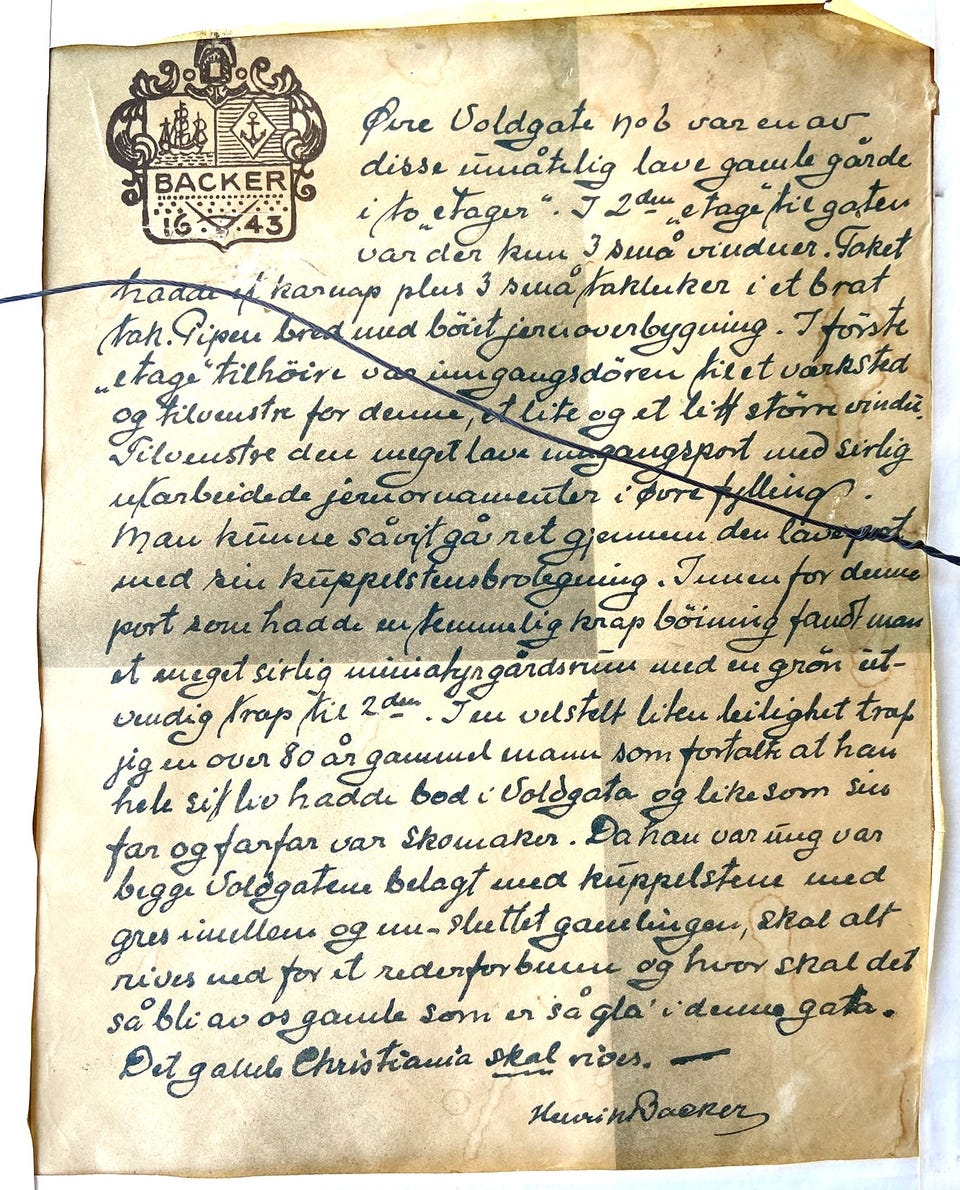 BACKER
16 43
Øvre Voldgate No 6 var en av
disse umåtelig lave gamle gårde
i to „etager". I 2den „etage" til gaten
var der kun 3 små vinduer. Taket
hadde et karnap plus 3 små takluker i et brat
tak. Pipen bred med böiet jernoverbygning. I förste
„etage" tilhöire var inngangsdören til et værksted
og tilvenstre for denne, et lite og et litt större vindu.
Tilvenstre den meget lave inngangsport med sirlig
utarbeidede jernornamenter i øvre fylling.
Man kunne såvit gå ret gjennem den lave port
med sin kuppelstensbrolegning. Innenfor denne
port som hadde en temmelig krap böining fandt man
et meget sirlig miniatyrgårdsrum med en grön ut-
vendig trap til 2den. I en velstelt liten leilighet traf
jeg en over 80 år gammel mann som fortalte at han
hele sit liv hadde bod i Voldgata og likesom sin
far og farfar var skomaker. Da han var ung var
begge Voldgatene belagt med kuppelstene med
gres imellem og nu – sluttet gamlingen, skal alt
rives ned for et rederforbunn og hvor skal det
så bli av os gamle som er så gla' i denne gata.
Det gamle Christiania skal rives. —
Henrik Backer